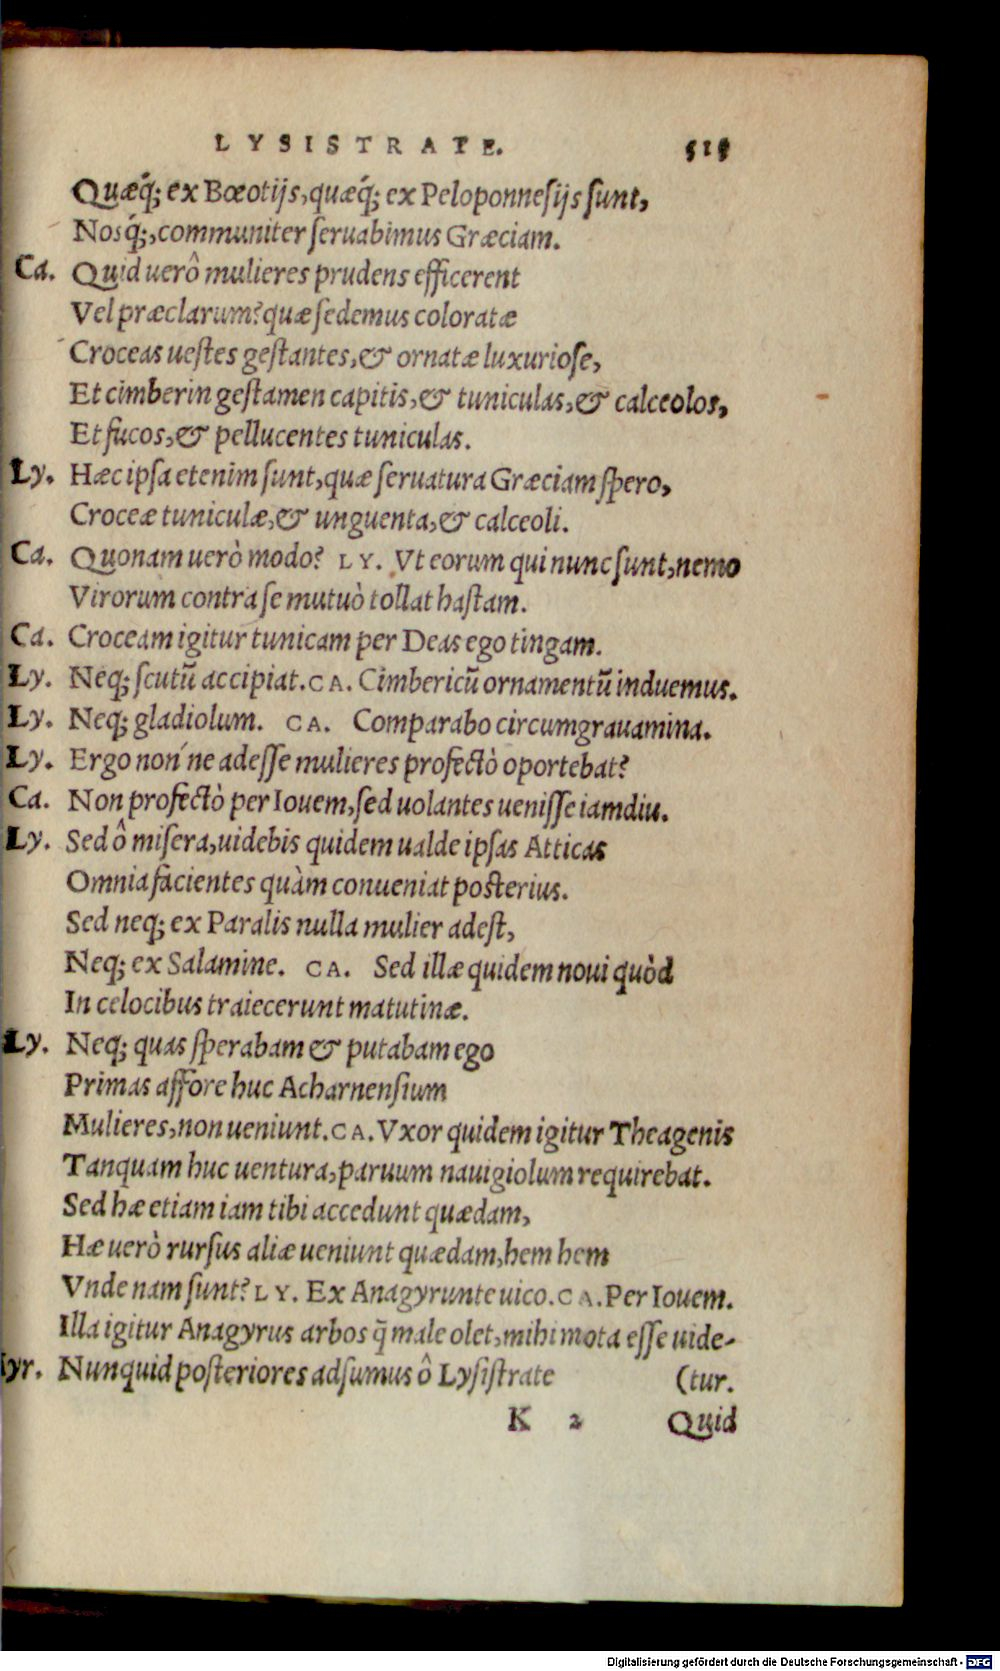 LYSISTRATE. 515
Quæq́; ex Bœotijs, quæq́; ex Peloponnesijs sunt,
Nosq́;, communiter seruabimus Græciam.
Ca. Quid uerô mulieres prudens efficerent
Vel præclarum? quæ sedemus coloratæ
Croceas uestes gestantes, & ornatæ luxuriose,
Et cimberin gestamen capitis, & tuniculas, & calceolos,
Et fucos, & pellucentes tuniculas.
Ly. Hæc ipsa etenim sunt, quæ seruatura Græciam spero,
Croceæ tuniculæ, & unguenta, & calceoli.
Ca. Quonam uerò modo? LY. Vt eorum qui nunc sunt, nemo
Virorum contra se mutuò tollat hastam.
Ca. Croceam igitur tunicam per Deas ego tingam.
Ly. Neq; scutũ accipiat. CA. Cimbericũ ornamentũ induemus.
Ly. Neq; gladiolum. CA. Comparabo circumgrauamina.
Ly. Ergo non'ne adesse mulieres profectò oportebat?
Ca. Non profectò per Iouem, sed uolantes uenisse iamdiu.
Ly. Sed ô misera, uidebis quidem ualde ipsas Atticas
Omnia facientes quàm conueniat posterius.
Sed neq; ex Paralis nulla mulier adest,
Neq; ex Salamine. CA. Sed illæ quidem noui quòd
In celocibus traiecerunt matutinæ.
Ly. Neq; quas sperabam & putabam ego
Primas affore huc Acharnensium
Mulieres, non ueniunt. CA. Vxor quidem igitur Theagenis
Tanquam huc uentura, paruum nauigiolum requirebat.
Sed hæ etiam iam tibi accedunt quædam,
Hæ uerò rursus aliæ ueniunt quædam, hem hem
Vnde nam sunt? LY. Ex Anagyrunte uico. CA. Per Iouem.
Illa igitur Anagyrus arbos q̃ male olet, mihi mota esse uide-
yr. Nunquid posteriores adsumus ô Lysistrate (tur.
K 2 Quid
Digitalisierung gefördert durch die Deutsche Forschungsgemeinschaft - DFG